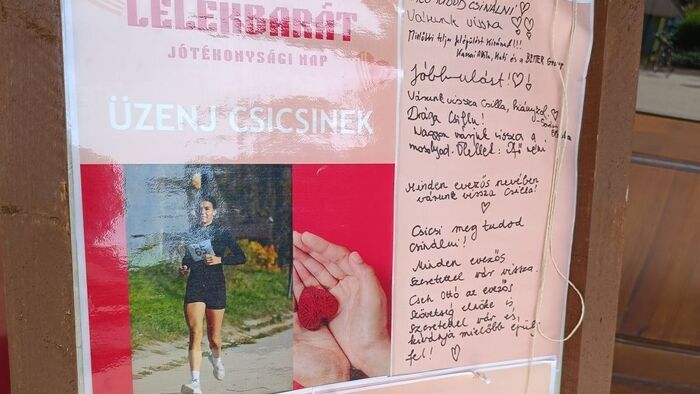 LÉLEKBARÁT
JÓTÉKONYSÁGI NAP
ÜZENJ CSICSINEK
CSINÁLNI
Várunk vissza
Mielőbbi teljes felépülést Kívánok!!!
Kati és a BITTER Group
Jobbulást!
Várunk vissza Csilla, hiányzol.
Drága Csilla!
Nagyon várjuk vissza a
mosolyod.
Minden evezős nevében
várunk vissza Csilla!
Csicsi meg tudod
csinálni!
Minden evezős
szeretettel vár vissza.
Cseh Ottó az evezős
szövetség elnöke is
szeretettel vár és
kívánja mielőbb épülj
fel!